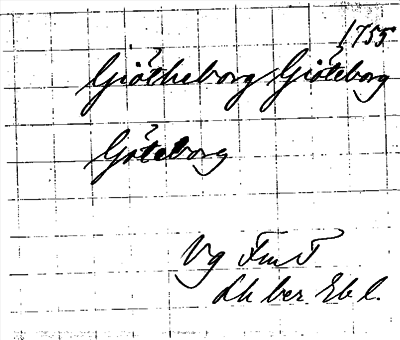 1755
Giötheborg Giöteborg
Göteborg
Vg FmT
Lk ber. Ebl.